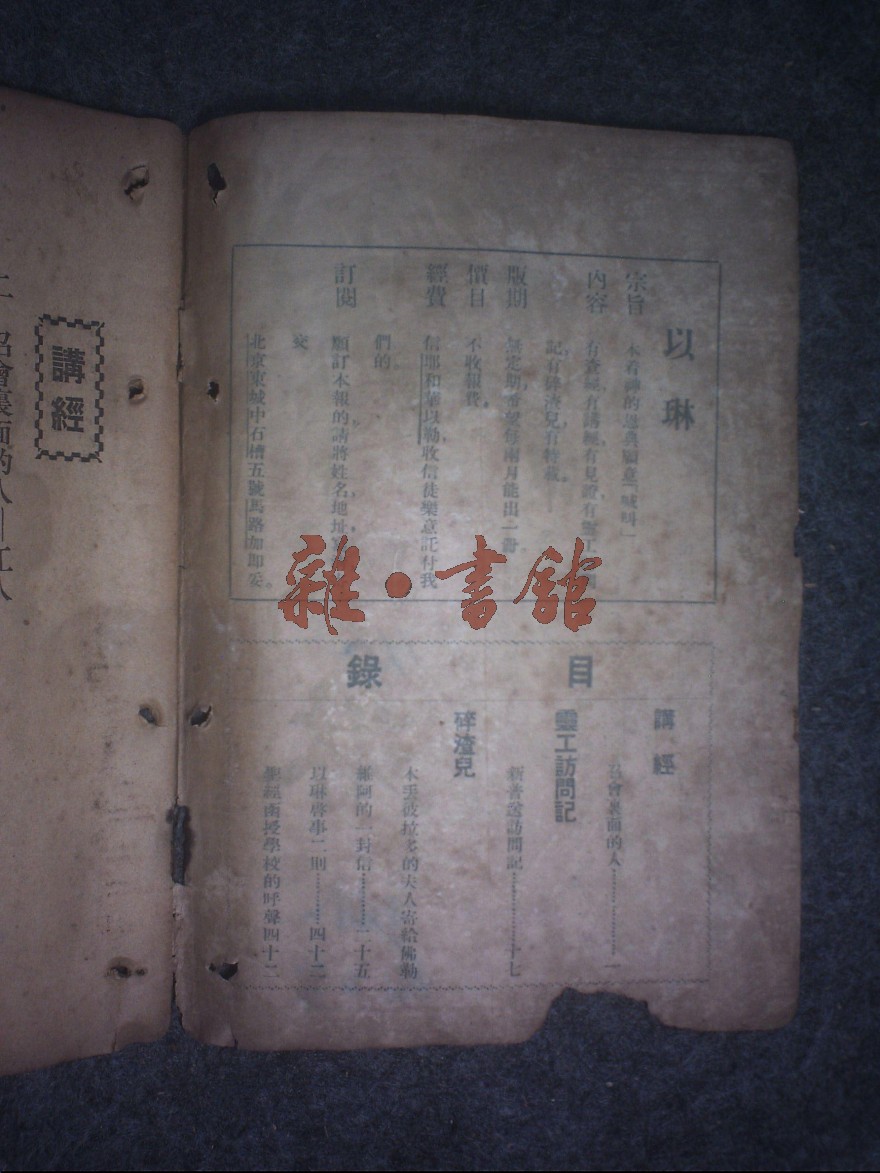 以琳
宗旨 本着神的恩典願意「喊叫」
內容 有查經,有講經,有見證,有靈工
記,有碎渣兒,有特載。
版期 無定期,希望每兩月能出一
價目 不收報費。
經費 信耶和華以勒,收信徒樂意託付我
們的。
訂閱 願訂本報的,請將姓名,地址,
交
北京東城中石槽五號馬路加即妥。
目錄
講經
召會裏面的人…………一
靈工訪問記
新普送訪問記…………十七
碎渣兒
木丟彼拉多的夫人寄給佛勒
維阿的一封信…………二十五
以琳啓事二則…………四十二
聖經函授學校的呼聲四十二
雜·書舘
講經
召會裏面的人